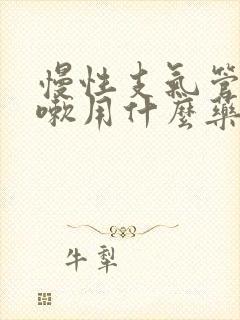 慢性支氣管
嗽用什麼藥
牛犁